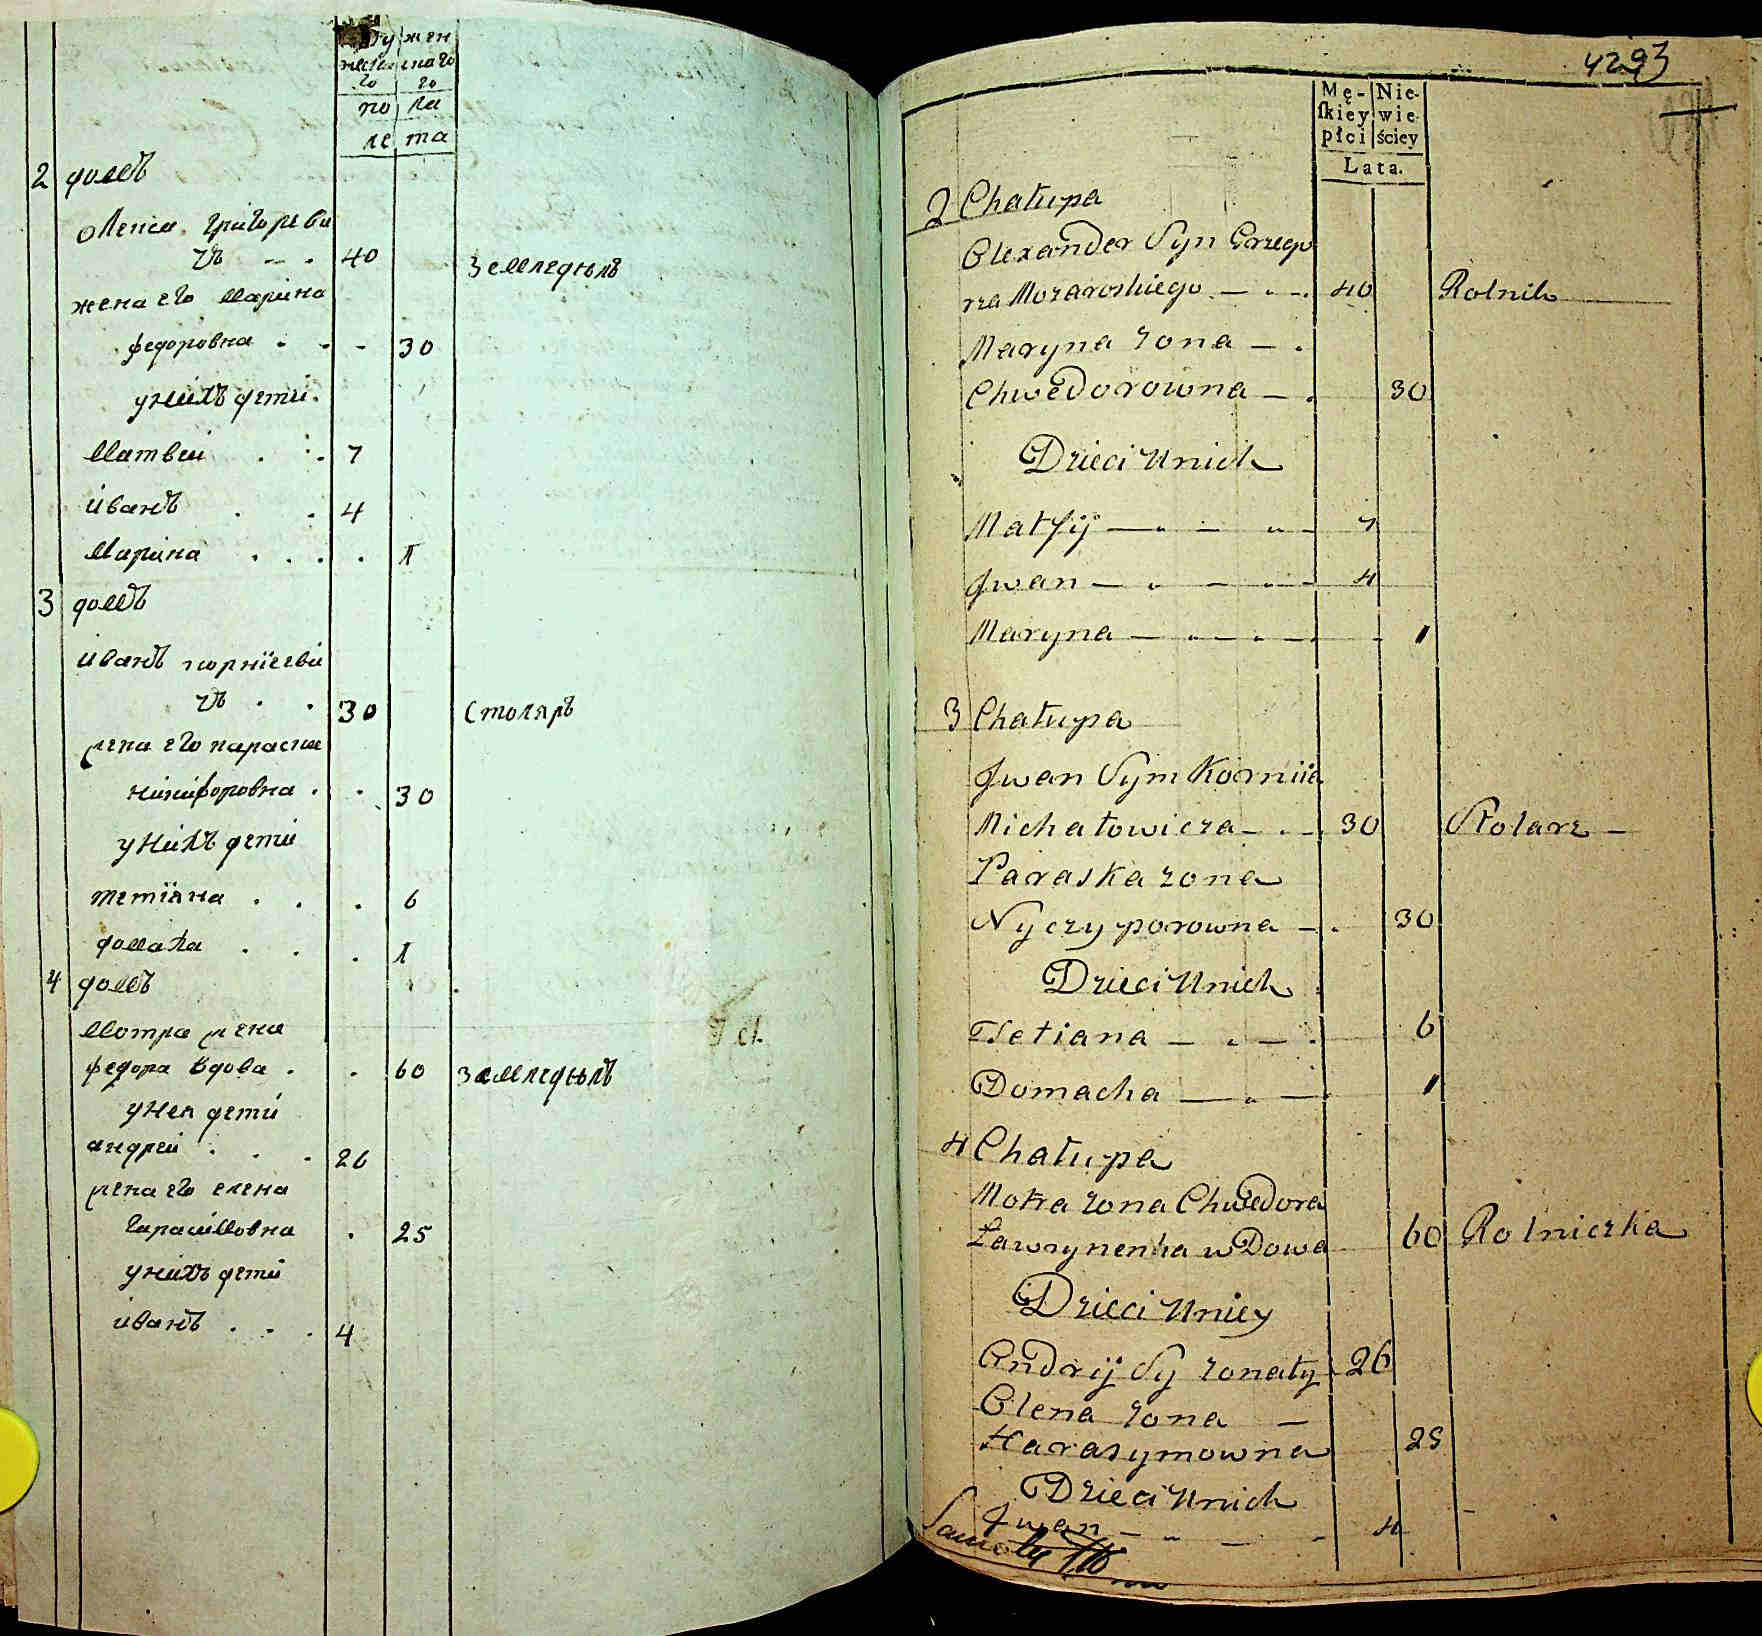 му жен
жеска скаго
го го
по ла
ле та
2 домъ
олекса григореви
чъ - . 40 земледелъ
жена его марина
федоровна . - - 30
унихъ дети.
матвеи . . . 7
иванъ . . 4
марина . . . . 1
3 домъ
иванъ корніеви
чъ . . 30 столяръ
жена его параска
никифоровна . . 30
унихъ дети
тетіяна . . . 6
домаха . . . 1
4 домъ
мотра жена
федора вдова . . 60 земледелъ
унея дети
андреи . . . 26
жена его елена
гарасимовна . 25
унихъ дети
иванъ . . . 4
4293
Mę- Nie-
skiey wie-
płci ściey
Lata.
2 Chałupa
Olexander Syn Grzego
rza Mozarowskiego — . — . 40 Rolnik
Maryna zona — .
Chwedorowna — . 30
Dzieci Unich
Matfij — . — . — 7
Jwan — . — . — 4
Maryna — . — . — 1
3 Chałupa
Jwan Syn Korniia
Michałowicza — . — 30 Stolarz —
Paraska zona
Nyczyporowna — . 30
Dzieci Unich
Tetiana — . — . 6
Domacha — . — 1
4 Chałupa
Motra zona Chwedora
Ławrynenka wDowa 60 Rolniczka
Dzieci Uniey
Andrij Sy zonaty 26
Olena zona —
Harasymowna 25
Dzieci Unich
Jwan — . — - 4